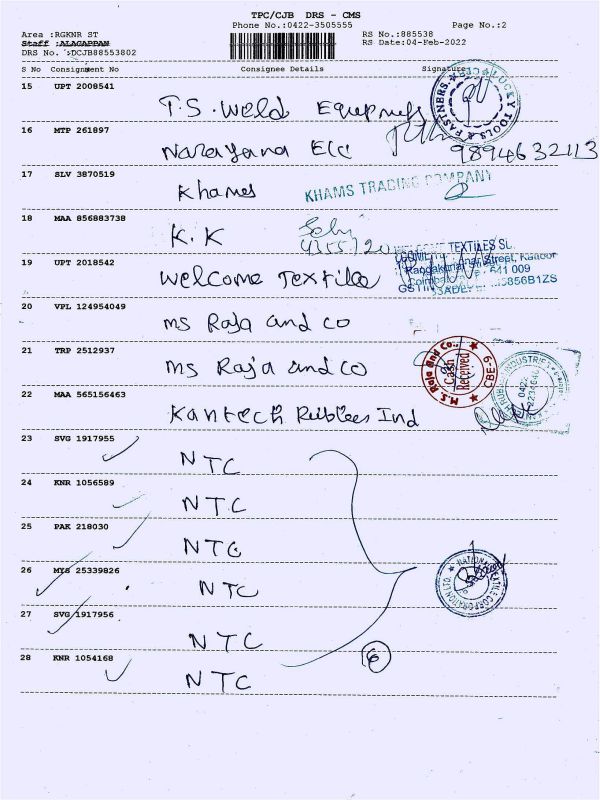 TPC/CJB DRS - CMS
Phone No.:0422-3505555 Page No.:2
Area :RGKNR ST RS No.:885538
Staff :ALAGAPPAN RS Date:04-Feb-2022
DRS No. :DCJB88553802
S No Consignment No Consignee Details Signature
15 UPT 2008541
T.S. Weld Equepments
LUCKY TOOLS & PARTNERS
16 MTP 261897
Narayana Elc 9894632113
17 SLV 3870519
Khames KHAMS TRADING COMPANY
18 MAA 856883738
K.K
19 UPT 2018542
Welcome Textiles
WELCOME TEXTILES
Street,
641 009
GSTIN
20 VPL 124954049
ms Raja and co
21 TRP 2512937
ms Raja and co
M.S. Raja and Co., CBE-9
Cash Received
22 MAA 565156463
Kantech Rubbees Ind
RUBBER INDUSTRIES
23 SVG 1917955
NTC
24 KNR 1056589
NTC
25 PAK 218030
NTC
26 MYS 25339826
NTC
NATIONAL TEXTILE CORPORATION LTD.
27 SVG 1917956
NTC
6
28 KNR 1054168
NTC